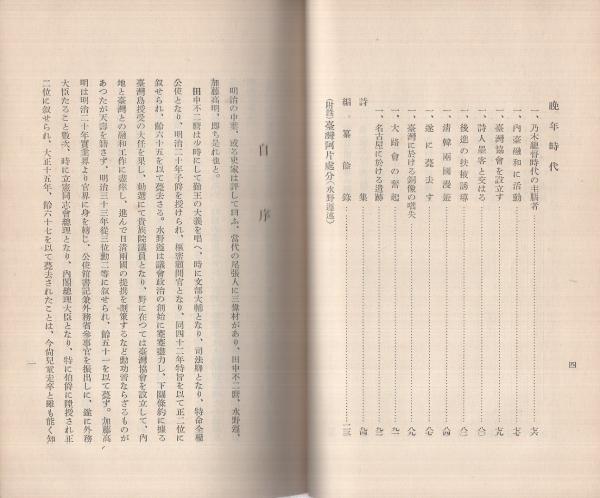 晩年時代
一、乃木總督時代の主腦者……七六
一、內臺融和に活動……七七
一、臺灣協會を設立す……七九
一、詩人墨客と交はる……八〇
一、後進の扶掖誘導……八二
一、淸韓兩國漫遊……八四
一、遂に薨去す……八八
一、大路會の奮起……九一
一、臺灣に於ける銅像の喪失……九二
一、名古屋に於ける遺跡……九三
詩集……九四
編纂餘錄……一二三
(附錄)臺灣阿片處分(水野遵述)
四
自序
明治の中葉、或る史家は評して曰ふ、當代の尾張人に三偉材があり、田中不二麿、水野遵、
加藤高明、卽ち是れ也と。
田中不二麿は少時にして勤王の大義を唱へ、時に文部大輔となり、司法卿となり、特命全權
公使となり、明治二十年子爵を授けられ、樞密顧問官となり、同四十二年特旨を以て正二位に
敍せられ、齡六十五を以て薨去さる。水野遵は議會政治の創始に蹇蹇盡力し、下關條約に據る
臺灣島授受の大任を果し、勅選にて貴族院議員となり、野に在つては臺灣協會を設立して、內
地と臺灣との融和工作に盡瘁し、進んで日淸兩國の提携を劃策するなど動功啻ならざるものが
あつたが天壽を籍さず、明治三十三年從三位勳二等に敍せられ、齡五十一を以て薨ず。加藤高
明は明治二十年實業界より官界に身を轉じ、公使館書記兼外務省參事官を振出しに、遂に外務
大臣たること數次、時に立憲同志會總理となり、內閣總理大臣となり、特に伯爵に陞授され正
二位に敍せられ、大正十五年、齡六十七を以て薨去されたことは、今尙兒童走卒と雖も能く知
一